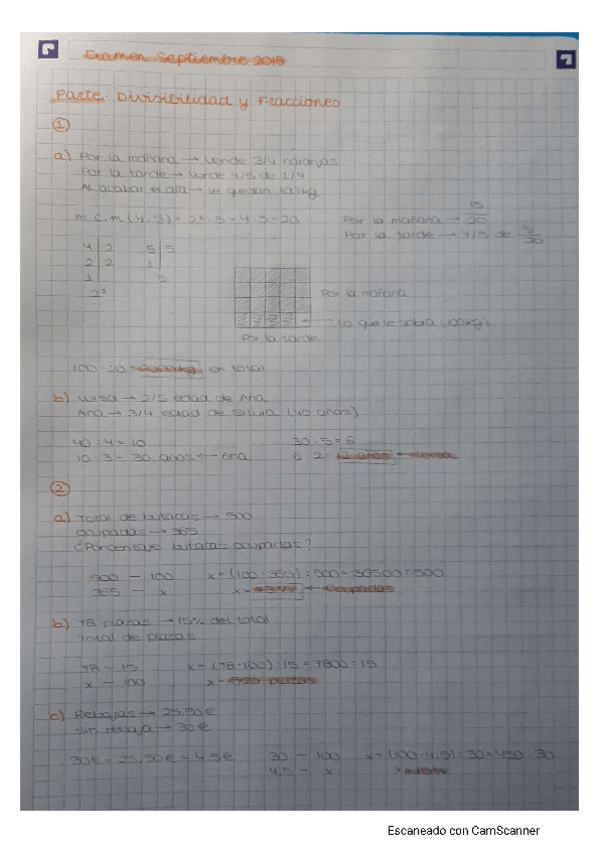 Examen Septiembre 2018
Parte: Divisibilidad y Fracciones
1
a) Por la mañana → vende 3/4 naranjas
Por la tarde → vende 4/5 de 1/4
Al acabar el día → le quedan 100kg
m.c.m (4,5) = 2² · 5 = 4 · 5 = 20
Por la mañana → 15/20
Por la tarde → 4/5 de 5/20
4 | 2 5 | 5
2 | 2 1 |
1 | 5
2²
Por la mañana
Lo que le sobra (100kg)
Por la tarde
100 · 20 = 2000kg en total
b) Luisa → 2/5 edad de Ana
Ana → 3/4 edad de Silvia (40 años)
40 : 4 = 10 30 : 5 = 6
10 · 3 = 30 años ← Ana 6 · 2 = 12 años ← Luisa
2
a) Total de butacas → 500
Ocupadas → 365
¿Porcentaje butacas ocupadas?
500 — 100 x = (100 · 365) : 500 = 36500 : 500
365 — x x = 73% ← Ocupadas
b) 78 plazas → 15% del total
Total de plazas
78 — 15 x = (78 · 100) : 15 = 7800 : 15
x — 100 x = 520 plazas
c) Rebajas → 25,50€
Sin rebaja → 30€
30€ - 25,50€ = 4,5€ 30 — 100 x = (100 · 4,5) : 30 = 450 : 30
4,5 — x x = 15%
Escaneado con CamScanner